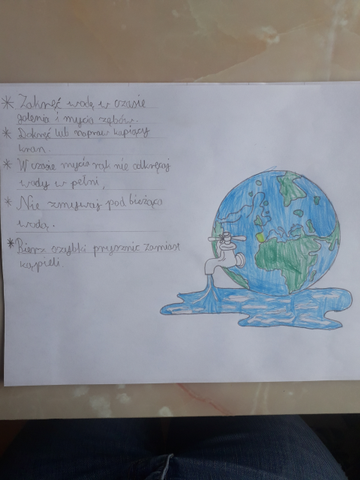 * Zakręć wodę w czasie
golenia i mycia zębów.
* Dokręć lub napraw kapiący
kran.
* W czasie mycia rąk nie odkręcaj
wody w pełni,
* Nie zmywaj pod bieżącą
wodą.
* Bierz szybki prysznic zamiast
kąpieli.